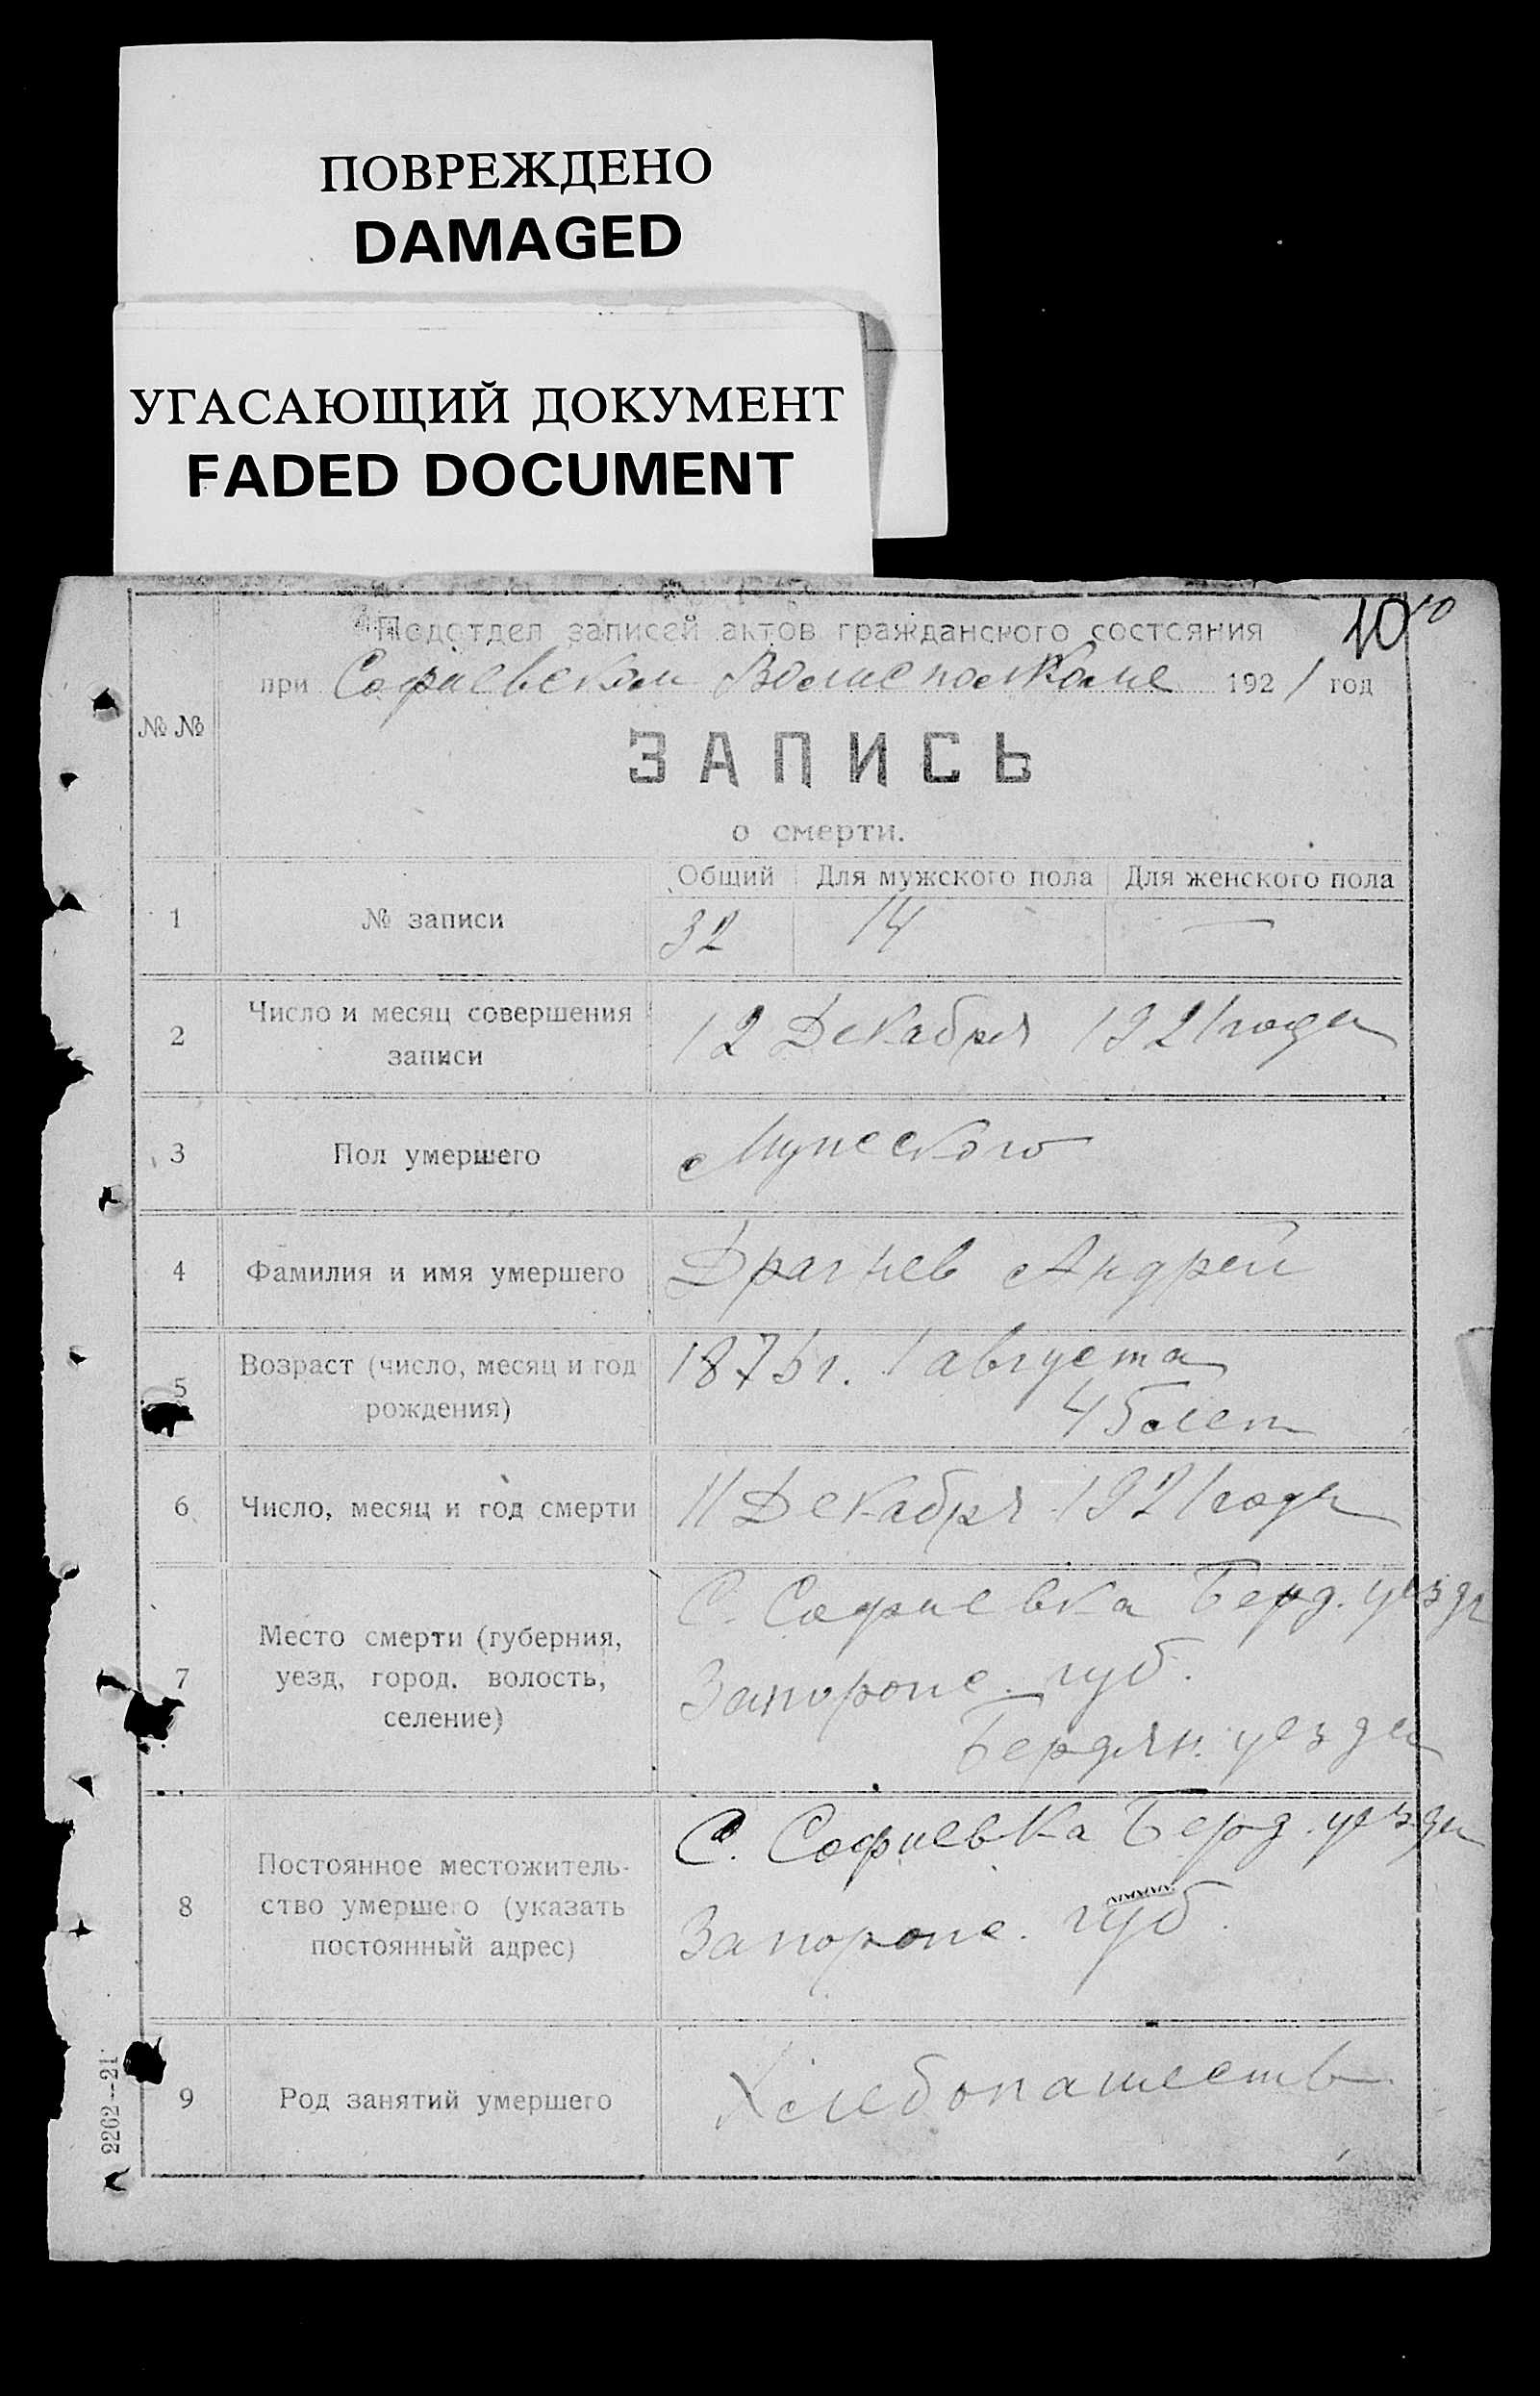 ПОВРЕЖДЕНО
DAMAGED
УГАСАЮЩИЙ ДОКУМЕНТ
FADED DOCUMENT
10 10
Подотдел записей актов гражданского состояния
при Софиевском Волисполкоме 1921 год
№ №
ЗАПИСЬ
о смерти.
Общий Для мужского пола Для женского пола
1 № записи 32 14 —
2 Число и месяц совершения
записи
12 Декабря 1921 года
3 Пол умершего Мужского
4 Фамилия и имя умершего Драгнев Андрей
5 Возраст (число, месяц и год
рождения)
1875 г. 1 августа
45 лет
6 Число, месяц и год смерти 11 Декабря 1921 года
7 Место смерти (губерния,
уезд, город, волость,
селение)
С. Софиевка Берд. уезда
Запорож. губ.
Бердян. уезда
8 Постоянное местожитель-
ство умершего (указать
постоянный адрес)
С. Софиевка Берд. уезда
Запорож. губ.
9 Род занятий умершего Хлебопашеств
2262—21